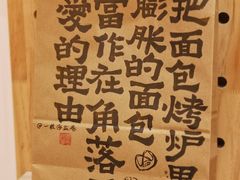 把面包烤炉
膨胀的面包
當作在角落
愛的理由